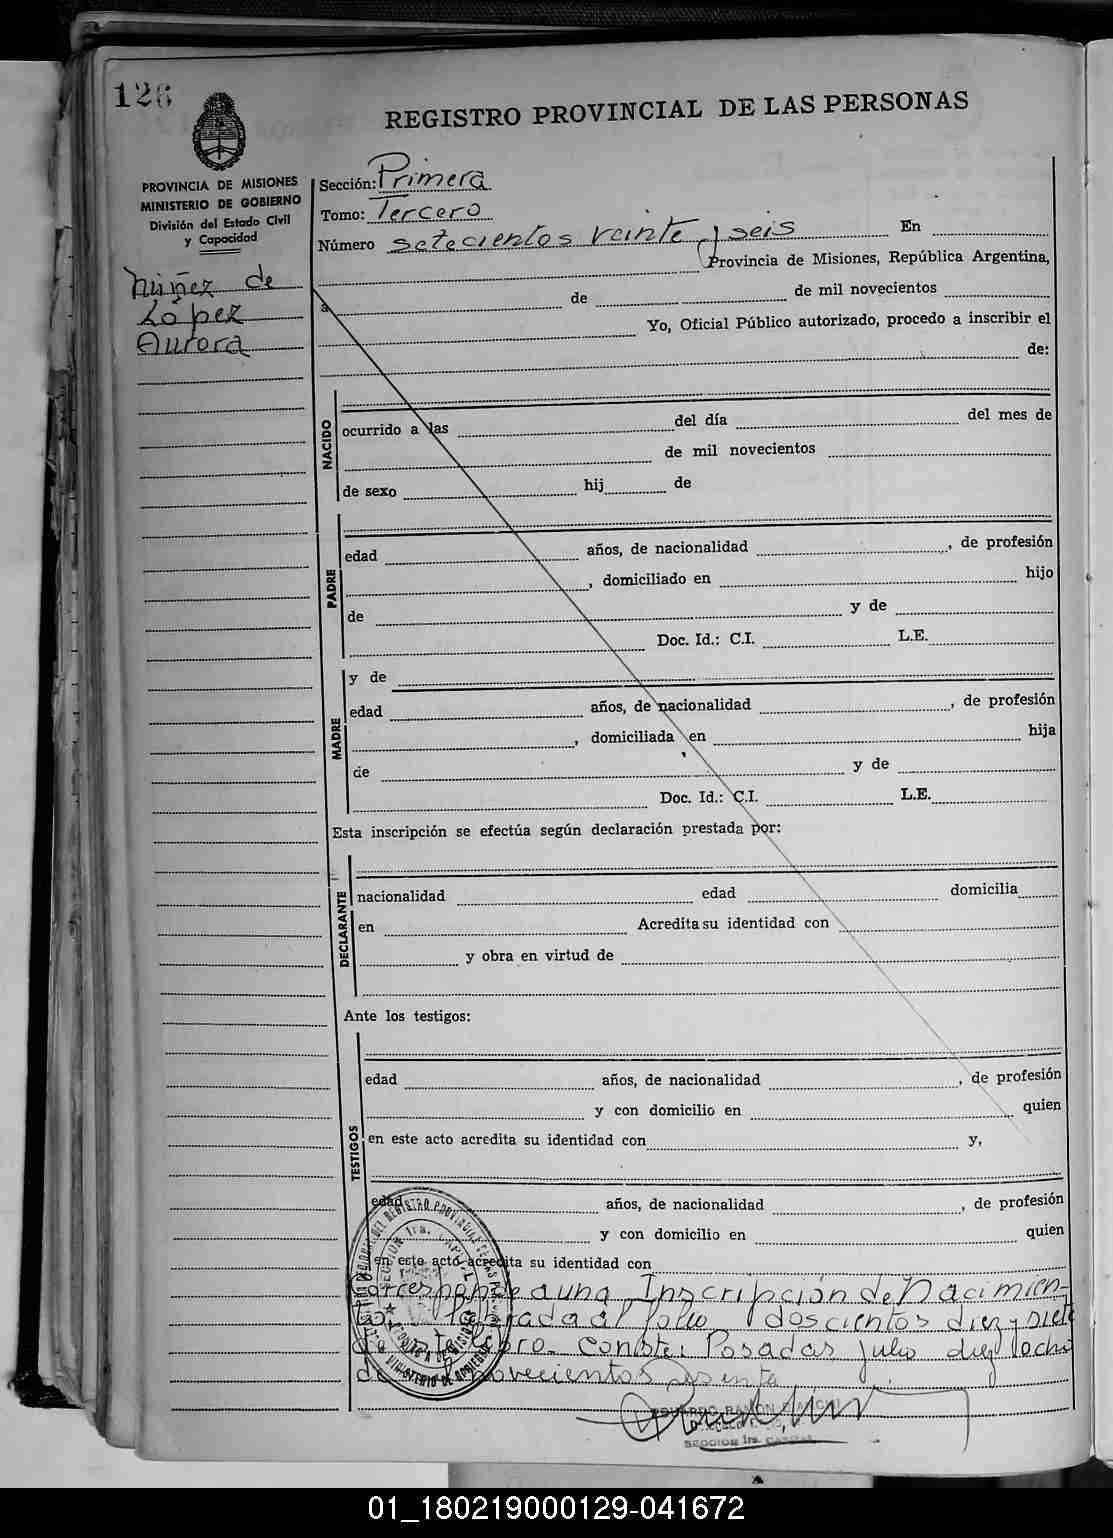 126
REGISTRO PROVINCIAL DE LAS PERSONAS
PROVINCIA DE MISIONES
MINISTERIO DE GOBIERNO
División del Estado Civil
y Capacidad
Núñez de
López
Aurora
Sección: Primera
Tomo: Tercero
Número setecientos veinte y seis En
Provincia de Misiones, República Argentina,
a de de mil novecientos
Yo, Oficial Público autorizado, procedo a inscribir el
de:
NACIDO
ocurrido a las del día del mes de
de mil novecientos
de sexo hij de
PADRE
edad años, de nacionalidad , de profesión
, domiciliado en hijo
de y de
Doc. Id.: C.I. L.E.
MADRE
y de
edad años, de nacionalidad , de profesión
, domiciliada en hija
de y de
Doc. Id.: C.I. L.E.
Esta inscripción se efectúa según declaración prestada por:
DECLARANTE
nacionalidad edad domicilia
en Acredita su identidad con
y obra en virtud de
Ante los testigos:
TESTIGOS
edad años, de nacionalidad , de profesión
y con domicilio en quien
en este acto acredita su identidad con y,
edad años, de nacionalidad , de profesión
y con domicilio en quien
en este acto acredita su identidad con
Corresponde a una Inscripción de Nacimien-
to labrada al folio doscientos diez y siete
de este libro. Conste. Posadas julio diez y ocho
de mil novecientos sesenta
EDUARDO RAMON
SECCION 1ra. CAPITAL
01_180219000129-041672